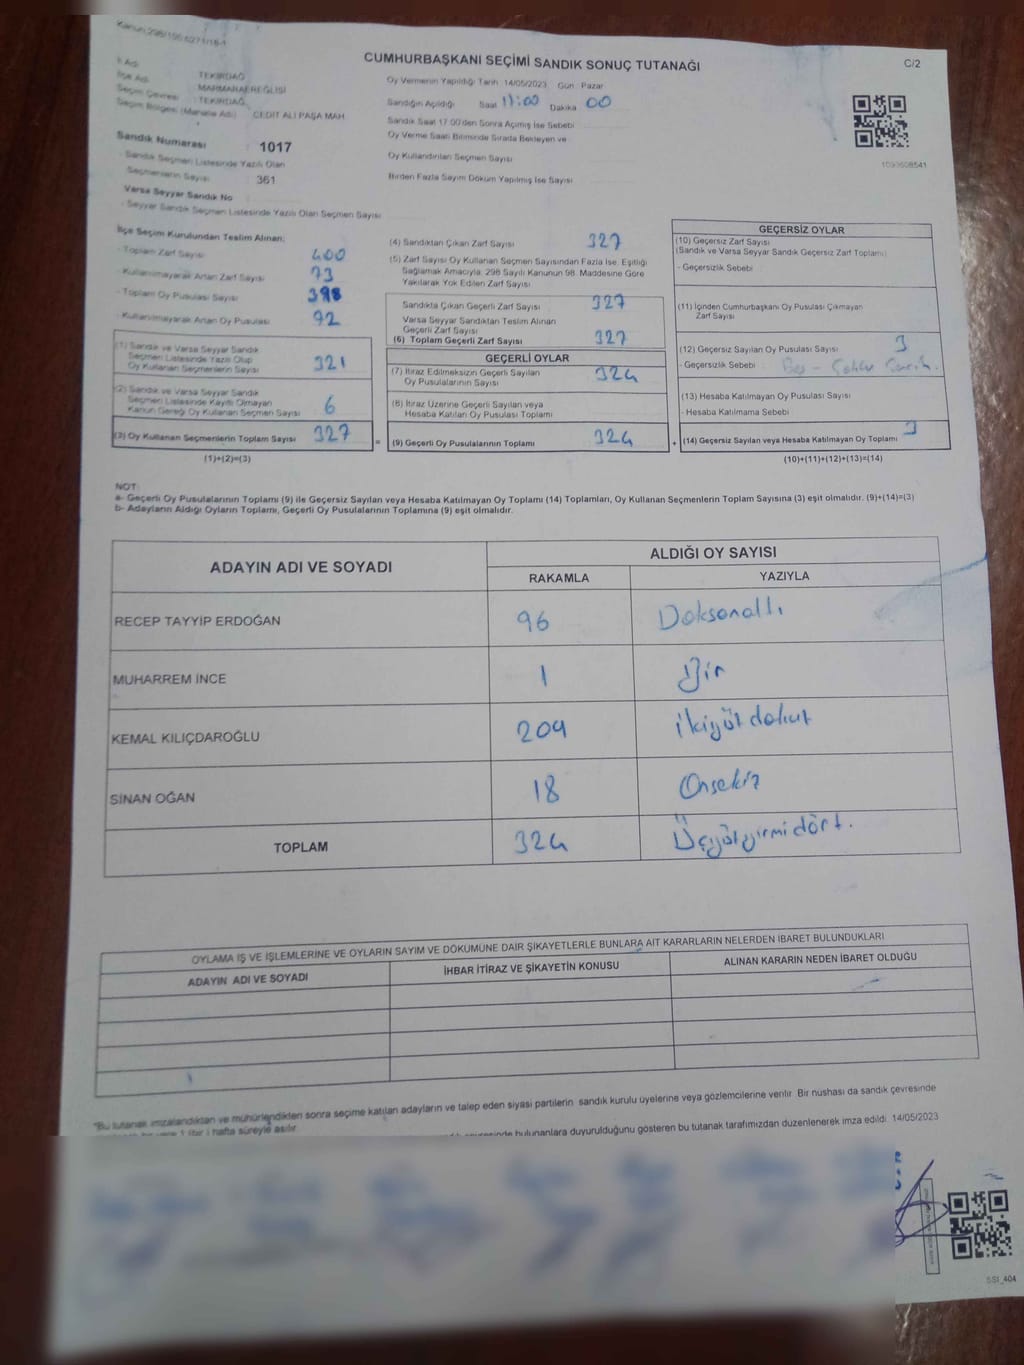 Kanun:298/105,6271/18-1
CUMHURBAŞKANI SEÇİMİ SANDIK SONUÇ TUTANAĞI
C/2
İl Adı : TEKİRDAĞ
İlçe Adı : MARMARAEREĞLİSİ
Seçim Çevresi : TEKİRDAĞ
Seçim Bölgesi (Mahalle Adı) : CEDİT ALİ PAŞA MAH.
Sandık Numarası : 1017
- Sandık Seçmen Listesinde Yazılı Olan
Seçmenlerin Sayısı : 361
Varsa Seyyar Sandık No :
- Seyyar Sandık Seçmen Listesinde Yazılı Olan Seçmen Sayısı
Oy Vermenin Yapıldığı Tarih 14/05/2023 Gün: Pazar
Sandığın Açıldığı Saat 17:00 Dakika 00
Sandık Saat 17.00'den Sonra Açılmış İse Sebebi
Oy Verme Saati Bitiminde Sırada Bekleyen ve
Oy Kullandırılan Seçmen Sayısı
Birden Fazla Sayım Döküm Yapılmış İse Sayısı
1093608541
İlçe Seçim Kurulundan Teslim Alınan;
- Toplam Zarf Sayısı 400
- Kullanılmayarak Artan Zarf Sayısı 73
- Toplam Oy Pusulası Sayısı 398
- Kullanılmayarak Artan Oy Pusulası
(1) Sandık ve Varsa Seyyar Sandık
Seçmen Listesinde Yazılı Olup
Oy Kullanan Seçmenlerin Sayısı 321
(2) Sandık ve Varsa Seyyar Sandık
Seçmen Listesinde Kayıtlı Olmayan
Kanun Gereği Oy Kullanan Seçmen Sayısı 6
(3) Oy Kullanan Seçmenlerin Toplam Sayısı 327 =
(1)+(2)=(3)
(4) Sandıktan Çıkan Zarf Sayısı 327
(5) Zarf Sayısı Oy Kullanan Seçmen Sayısından Fazla İse, Eşitliği
Sağlamak Amacıyla, 298 Sayılı Kanunun 98. Maddesine Göre
Yakılarak Yok Edilen Zarf Sayısı
Sandıkta Çıkan Geçerli Zarf Sayısı 327
Varsa Seyyar Sandıktan Teslim Alınan
Geçerli Zarf Sayısı
(6) Toplam Geçerli Zarf Sayısı 327
GEÇERLİ OYLAR
(7) İtiraz Edilmeksizin Geçerli Sayılan
Oy Pusulalarının Sayısı 324
(8) İtiraz Üzerine Geçerli Sayılan veya
Hesaba Katılan Oy Pusulası Toplamı
(9) Geçerli Oy Pusulalarının Toplamı 324 +
GEÇERSİZ OYLAR
(10) Geçersiz Zarf Sayısı
(Sandık ve Varsa Seyyar Sandık Geçersiz Zarf Toplamı)
- Geçersizlik Sebebi
(11) İçinden Cumhurbaşkanı Oy Pusulası Çıkmayan
Zarf Sayısı
(12) Geçersiz Sayılan Oy Pusulası Sayısı 3
- Geçersizlik Sebebi
(13) Hesaba Katılmayan Oy Pusulası Sayısı
- Hesaba Katılmama Sebebi
(14) Geçersiz Sayılan veya Hesaba Katılmayan Oy Toplamı 3
(10)+(11)+(12)+(13)=(14)
NOT:
a- Geçerli Oy Pusulalarının Toplamı (9) ile Geçersiz Sayılan veya Hesaba Katılmayan Oy Toplamı (14) Toplamları, Oy Kullanan Seçmenlerin Toplam Sayısına (3) eşit olmalıdır. (9)+(14)=(3)
b- Adayların Aldığı Oyların Toplamı, Geçerli Oy Pusulalarının Toplamına (9) eşit olmalıdır.
ADAYIN ADI VE SOYADI
ALDIĞI OY SAYISI
RAKAMLA YAZIYLA
RECEP TAYYİP ERDOĞAN 96 Doksanaltı
MUHARREM İNCE 1 Bir
KEMAL KILIÇDAROĞLU 209 ikiyüz dokuz
SİNAN OĞAN 18 Onsekiz
TOPLAM 324 Üçyüzyirmidört.
OYLAMA İŞ VE İŞLEMLERİNE VE OYLARIN SAYIM VE DÖKÜMÜNE DAİR ŞİKAYETLERLE BUNLARA AİT KARARLARIN NELERDEN İBARET BULUNDUKLARI
ADAYIN ADI VE SOYADI İHBAR İTİRAZ VE ŞİKAYETİN KONUSU ALINAN KARARIN NEDEN İBARET OLDUĞU
"Bu tutanak imzalandıktan ve mühürlendikten sonra seçime katılan adayların ve talep eden siyasi partilerin sandık kurulu üyelerine veya gözlemcilerine verilir. Bir nüshası da sandık çevresinde
hafta süreyle asılır.
bulunanlara duyurulduğunu gösteren bu tutanak tarafımızdan düzenlenerek imza edildi. 14/05/2023
SSI_404